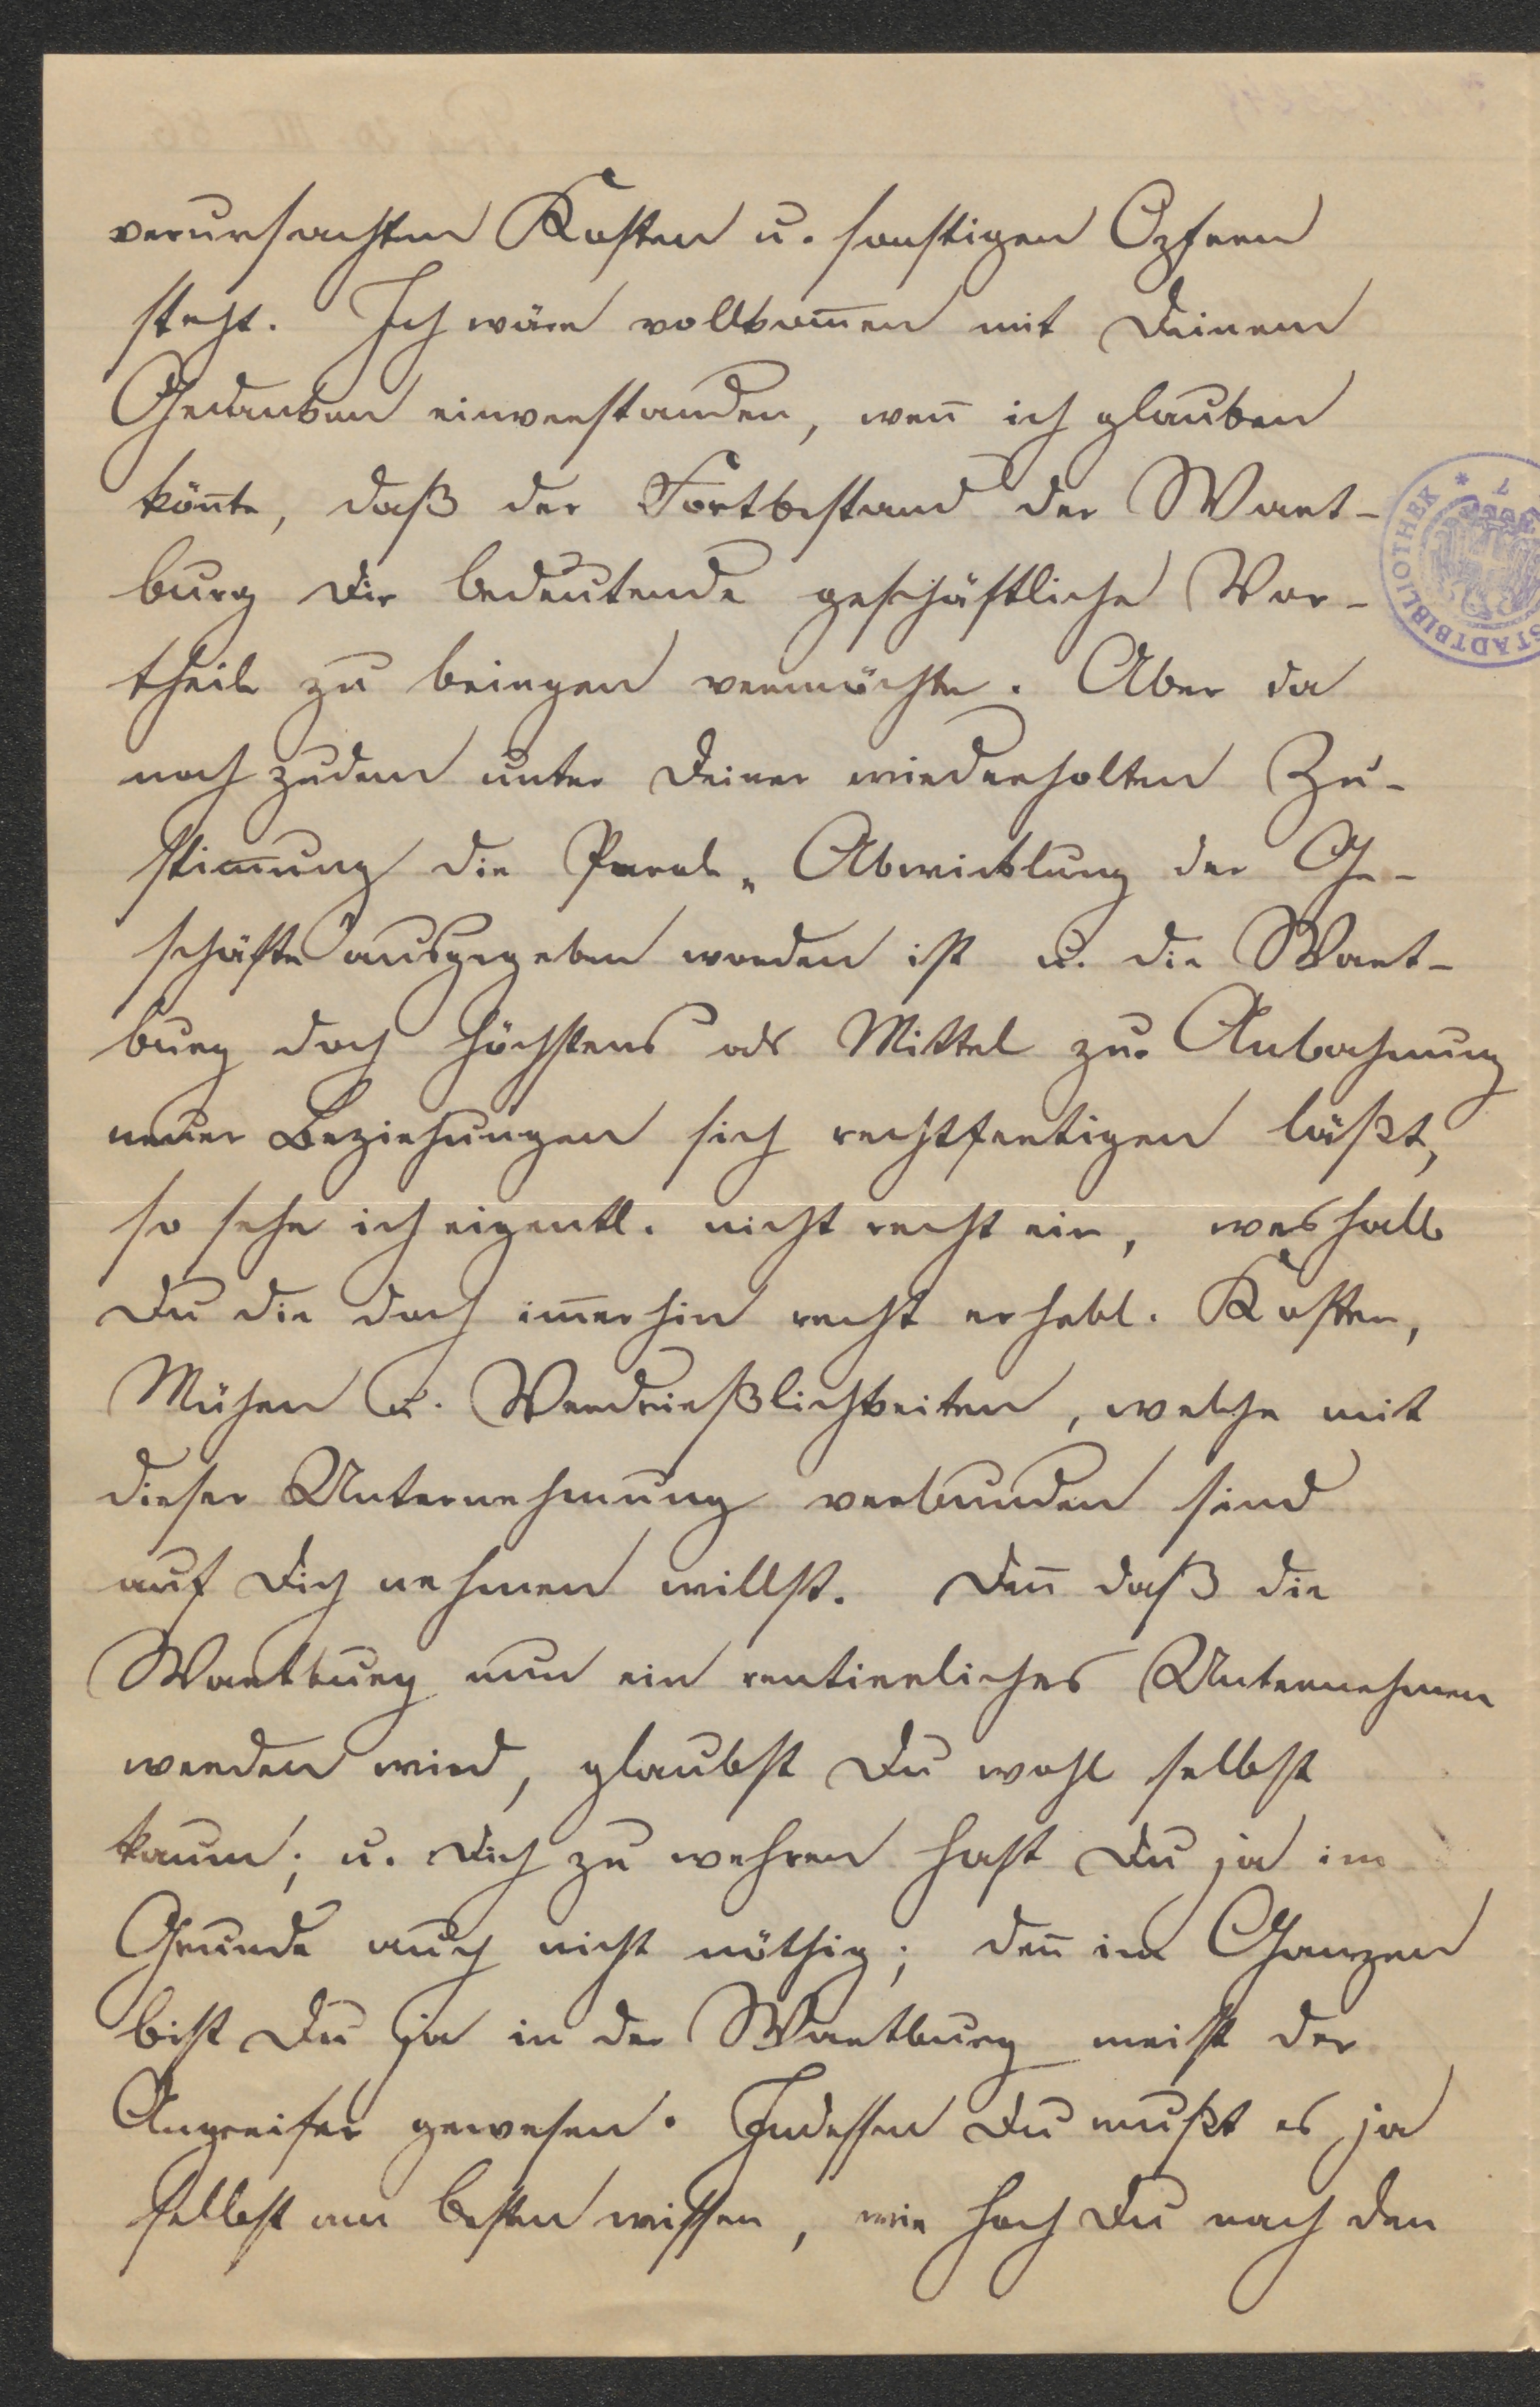 verursachten Kosten u. sonstigen Opfern
steht. Ich wäre vollkom̄en mit Deinem
Gedanken einverstanden, wen̄ ich glauben
kön̄te, daß der Fortbestand der Wart-
burg Dir bedeutende geschäftliche Vor-
theile zu bringen vermöchte. Aber da
noch zudem unter Deiner wiederholten Zu-
stim̄ung die Parole „Abwicklung der Ge-
schäfte“ ausgegeben worden ist u. die Wart-
burg doch höchstens als Mittel zur Anbahnung
neuer Beziehungen sich rechtfertigen läßt,
so sehe ich eigentl. nicht recht ein, weshalb
Du die doch im̄erhin recht erhebl. Kosten,
Mühen u. Verdrießlichkeiten, welche mit
dieser Unternehmung verbunden sind
auf Dich nehmen willst. Den̄ daß die
Wartburg nun ein rentierliches Unternehmen
werden wird, glaubst Du wohl selbst
kaum; u. Dich zu wehren hast Du ja im
Grunde auch nicht nöthig; den̄ im Ganzen
bist Du ja in der Wartburg meist der
Angreifer gewesen. Indessen Du mußt es ja
selbst am besten wissen, wie hoch Du nach den
STADTBIBLIOTHEK